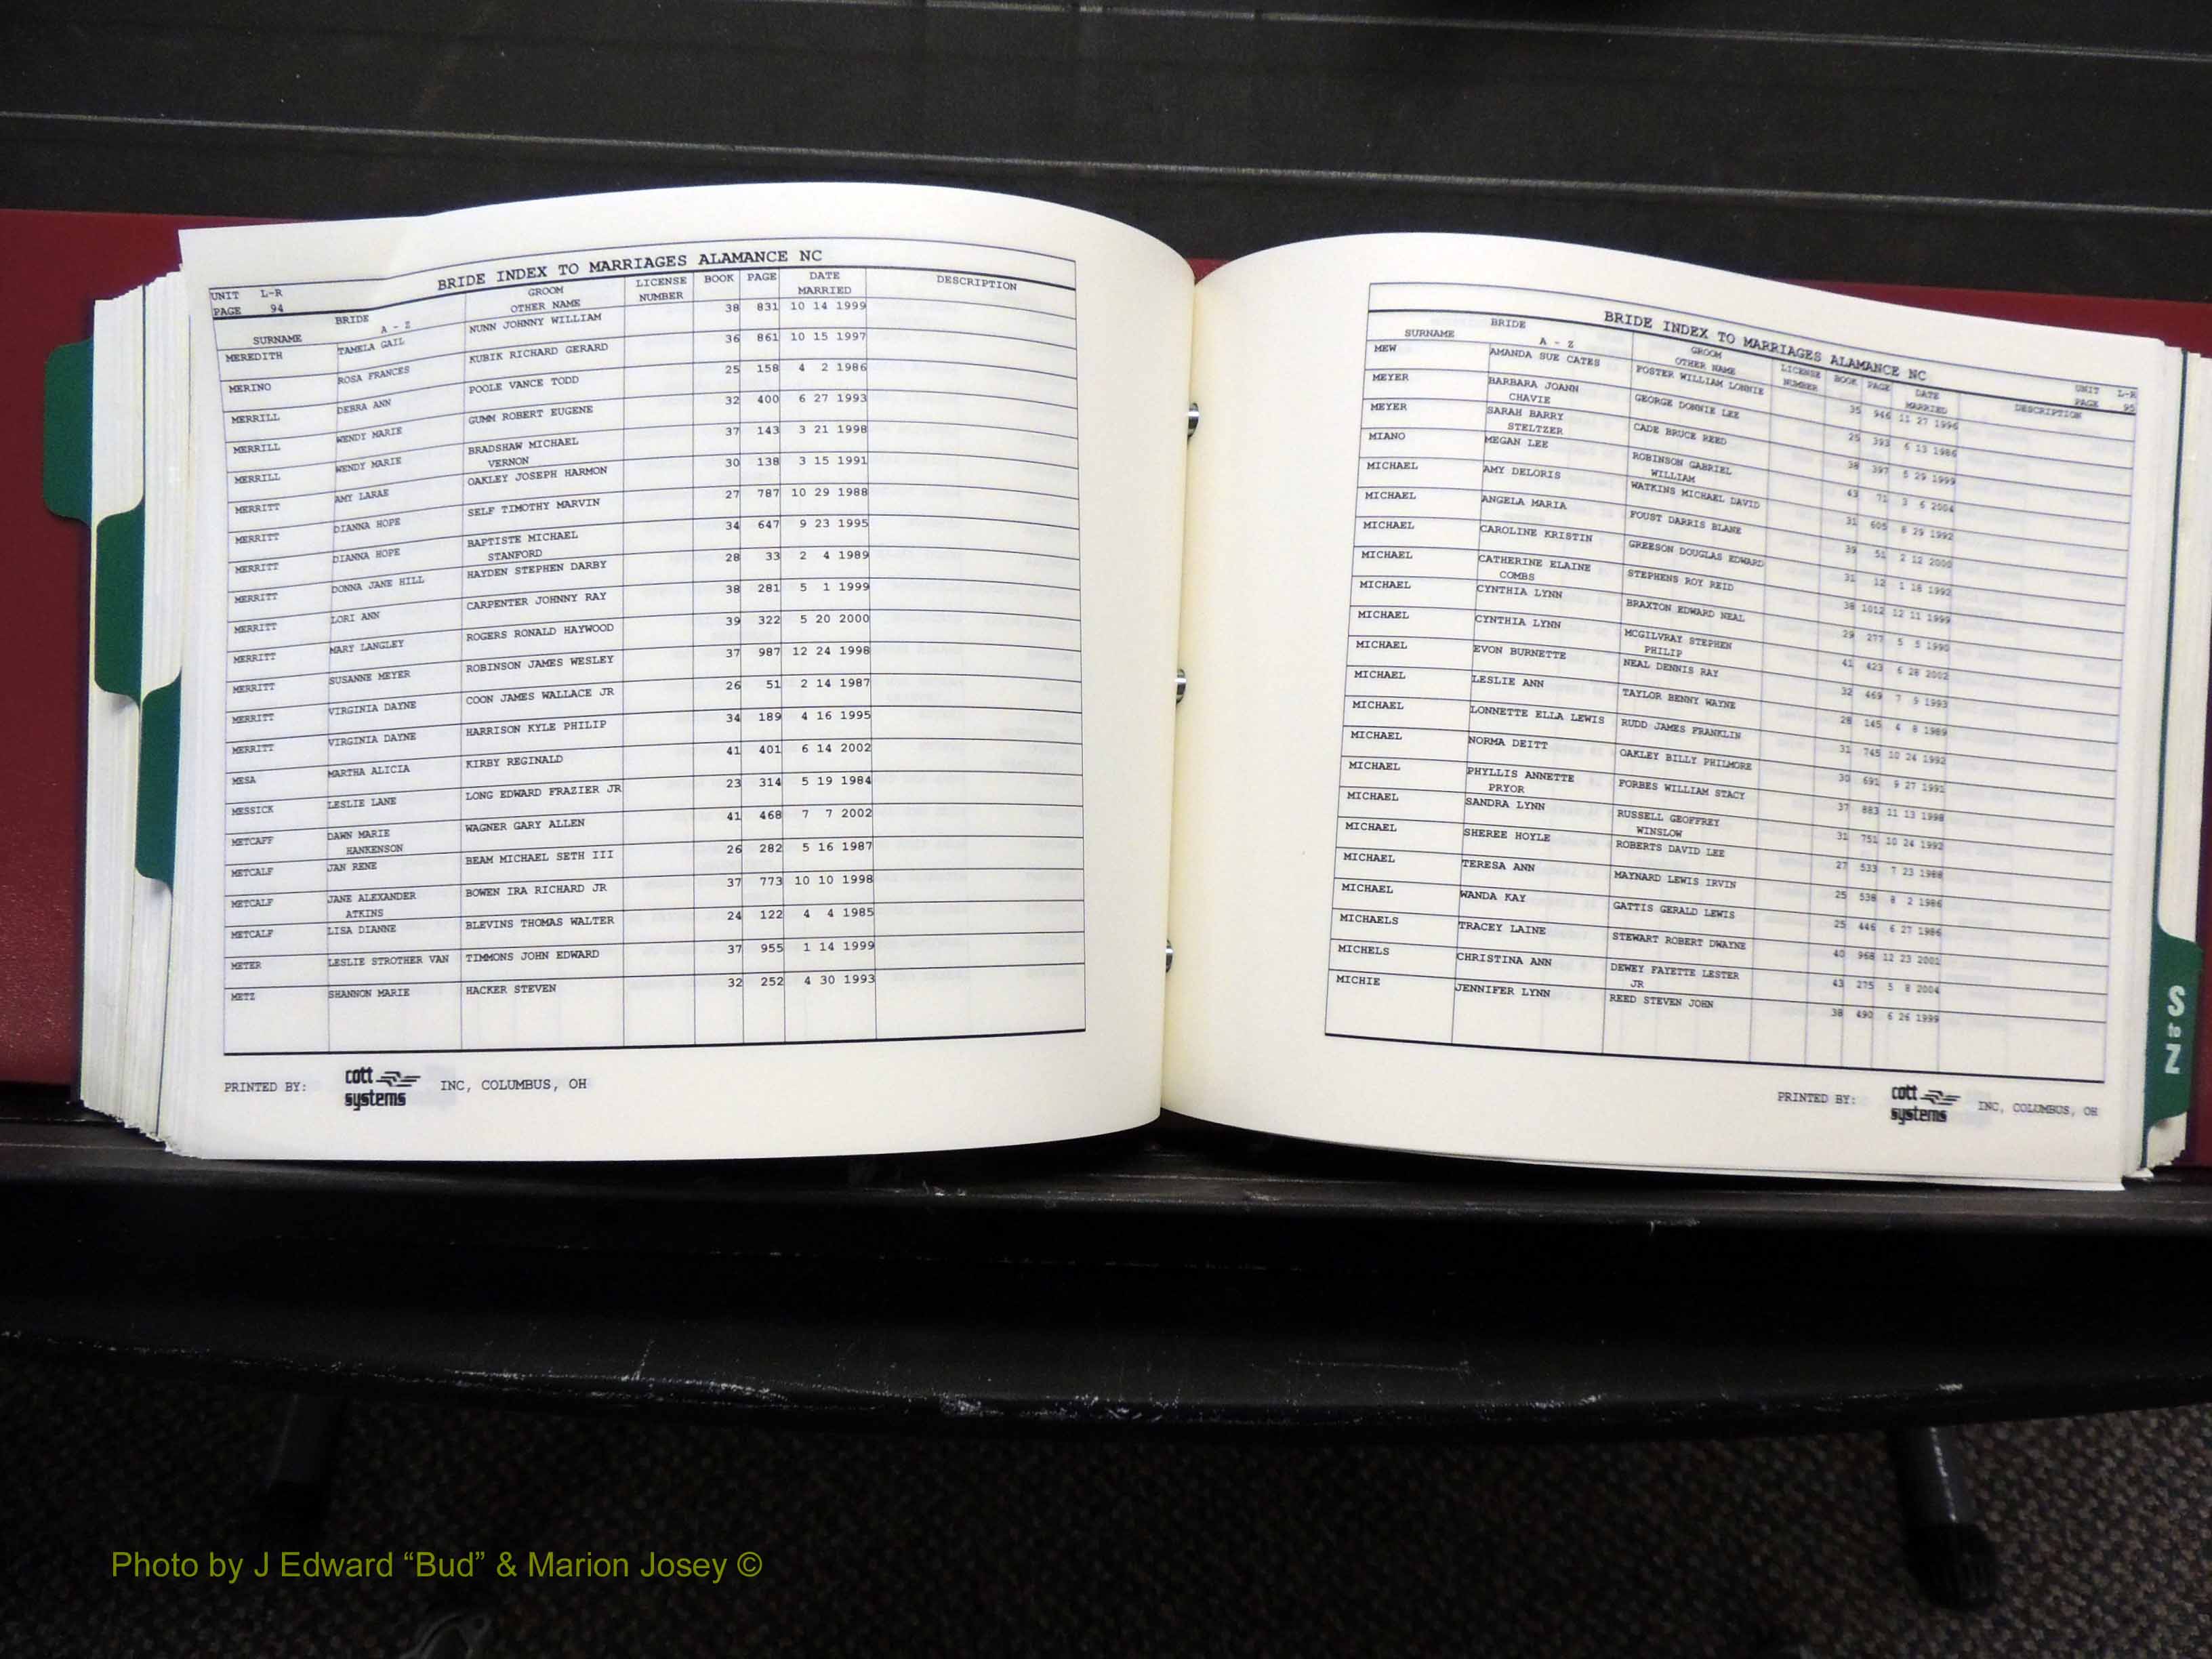 BRIDE INDEX TO MARRIAGES ALAMANCE NC
UNIT L-R
PAGE 94
BRIDE GROOM LICENSE BOOK PAGE DATE DESCRIPTION
SURNAME A - Z OTHER NAME NUMBER MARRIED
MEREDITH TAMELA GAIL NUNN JOHNNY WILLIAM 38 831 10 14 1999
MERINO ROSA FRANCES KUBIK RICHARD GERARD 36 861 10 15 1997
MERRILL DEBRA ANN POOLE VANCE TODD 25 158 4 2 1986
MERRILL WENDY MARIE GUMM ROBERT EUGENE 32 400 6 27 1993
MERRILL WENDY MARIE BRADSHAW MICHAEL 37 143 3 21 1998
VERNON
MERRITT AMY LARAE OAKLEY JOSEPH HARMON 30 138 3 15 1991
MERRITT DIANNA HOPE SELF TIMOTHY MARVIN 27 787 10 29 1988
MERRITT DIANNA HOPE BAPTISTE MICHAEL 34 647 9 23 1995
STANFORD
MERRITT DONNA JANE HILL HAYDEN STEPHEN DARBY 28 33 2 4 1989
MERRITT LORI ANN CARPENTER JOHNNY RAY 38 281 5 1 1999
MERRITT MARY LANGLEY ROGERS RONALD HAYWOOD 39 322 5 20 2000
MERRITT SUSANNE MEYER ROBINSON JAMES WESLEY 37 987 12 24 1998
MERRITT VIRGINIA DAYNE COON JAMES WALLACE JR 26 51 2 14 1987
MERRITT VIRGINIA DAYNE HARRISON KYLE PHILIP 34 189 4 16 1995
MESA MARTHA ALICIA KIRBY REGINALD 41 401 6 14 2002
MESSICK LESLIE LANE LONG EDWARD FRAZIER JR 23 314 5 19 1984
METCAFF DAWN MARIE WAGNER GARY ALLEN 41 468 7 7 2002
HANKENSON
METCALF JAN RENE BEAM MICHAEL SETH III 26 282 5 16 1987
METCALF JANE ALEXANDER BOWEN IRA RICHARD JR 37 773 10 10 1998
ATKINS
METCALF LISA DIANNE BLEVINS THOMAS WALTER 24 122 4 4 1985
METER LESLIE STROTHER VAN TIMMONS JOHN EDWARD 37 955 1 14 1999
METZ SHANNON MARIE HACKER STEVEN 32 252 4 30 1993
PRINTED BY: cott systems INC, COLUMBUS, OH
BRIDE INDEX TO MARRIAGES ALAMANCE NC
UNIT L-R
PAGE 95
BRIDE GROOM LICENSE BOOK PAGE DATE DESCRIPTION
SURNAME A - Z OTHER NAME NUMBER MARRIED
MEW AMANDA SUE CATES FOSTER WILLIAM LONNIE 35 946 11 27 1996
MEYER BARBARA JOANN GEORGE DONNIE LEE 25 393 6 13 1986
CHAVIE
MEYER SARAH BARRY CADE BRUCE REED 38 397 5 29 1999
STELTZER
MIANO MEGAN LEE ROBINSON GABRIEL 43 71 3 6 2004
WILLIAM
MICHAEL AMY DELORIS WATKINS MICHAEL DAVID 31 605 8 29 1992
MICHAEL ANGELA MARIA FOUST DARRIS BLANE 39 51 2 12 2000
MICHAEL CAROLINE KRISTIN GREESON DOUGLAS EDWARD 31 12 1 18 1992
MICHAEL CATHERINE ELAINE STEPHENS ROY REID 38 1012 12 11 1999
COMBS
MICHAEL CYNTHIA LYNN BRAXTON EDWARD NEAL 29 277 5 5 1990
MICHAEL CYNTHIA LYNN MCGILVRAY STEPHEN 41 423 6 28 2002
PHILIP
MICHAEL EVON BURNETTE NEAL DENNIS RAY 32 469 7 9 1993
MICHAEL LESLIE ANN TAYLOR BENNY WAYNE 28 145 4 8 1989
MICHAEL LONNETTE ELLA LEWIS RUDD JAMES FRANKLIN 31 745 10 24 1992
MICHAEL NORMA DEITT OAKLEY BILLY PHILMORE 30 691 9 27 1991
MICHAEL PHYLLIS ANNETTE FORBES WILLIAM STACY 37 883 11 13 1998
PRYOR
MICHAEL SANDRA LYNN RUSSELL GEOFFREY 31 751 10 24 1992
WINSLOW
MICHAEL SHEREE HOYLE ROBERTS DAVID LEE 27 533 7 23 1988
MICHAEL TERESA ANN MAYNARD LEWIS IRVIN 25 538 8 2 1986
MICHAEL WANDA KAY GATTIS GERALD LEWIS 25 446 6 27 1986
MICHAELS TRACEY LAINE STEWART ROBERT DWAYNE 40 968 12 23 2001
MICHELS CHRISTINA ANN DEWEY FAYETTE LESTER 43 275 5 8 2004
JR
MICHIE JENNIFER LYNN REED STEVEN JOHN 38 490 6 26 1999
PRINTED BY: cott systems INC, COLUMBUS, OH
S to Z
Photo by J Edward “Bud” & Marion Josey ©